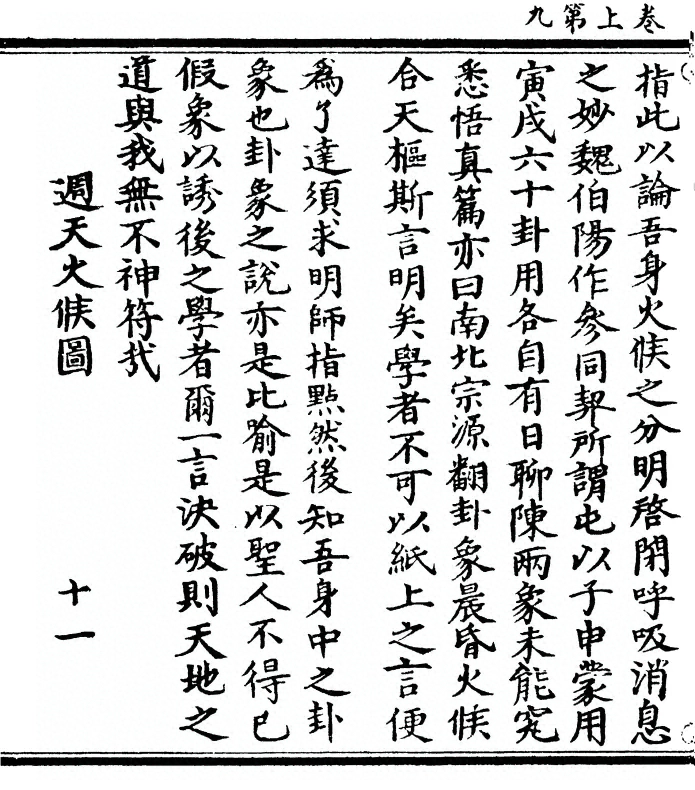 卷上第九
指此以論吾身火候之分明啓閉呼吸消息
之妙魏伯陽作參同契所謂屯以子申蒙用
寅戌六十卦用各自有日聊陳兩象未能究
悉悟真篇亦曰南北宗源翻卦象晨昏火候
合天樞斯言明矣學者不可以紙上之言便
爲了達須求明師指點然後知吾身中之卦
象也卦象之說亦是比喻是以聖人不得已
假象以誘後之學者爾一言決破則天地之
道與我無不神符矣
週天火候圖
十一